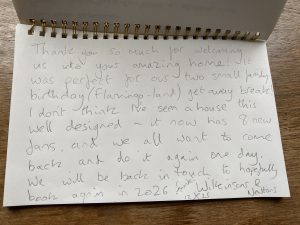 Thank you so much for welcoming
us into your amazing home! It
was perfect for our two small family
birthday (Flamingo-land) get away break
I dont think I've seen a house this
well designed - it now has 8 new
fans, and we all want to come
back and do it again one day.
We will be back in touch to hopefully
book again in 2026 Wilkinsons &